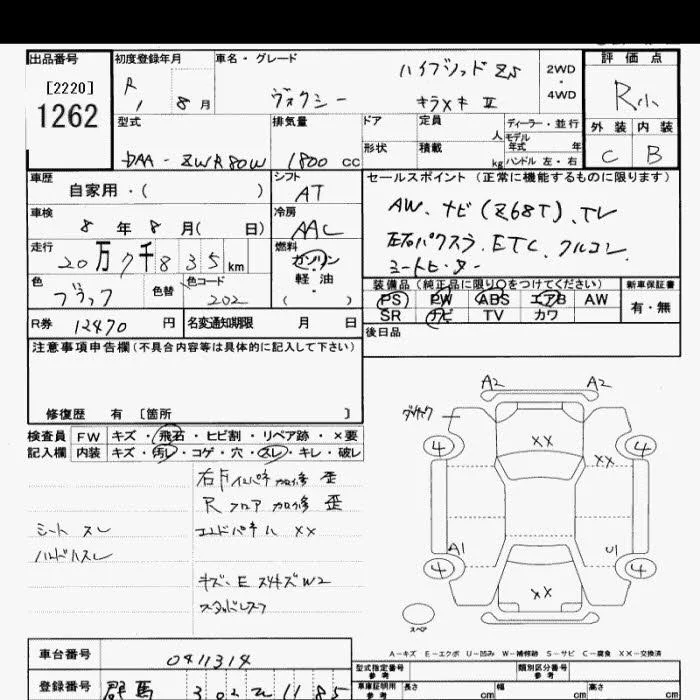 出品番号
[2220]
1262
初度登録年月
R1 8月
車名・グレード
ハイブリッド ZS
ヴォクシー
キラメキ Ⅱ
2WD
・
4WD
評価点
R小
外装 内装
C B
型式
DAA-ZWR80W
排気量
1800 cc
ドア
形状
定員
人
積載
kg
ディーラー・並行
モデル
年式 年
ハンドル 左・右
車歴
自家用・( )
シフト
AT
セールスポイント (正常に機能するものに限ります)
AW、ナビ(Z68T)、TV
左右パワスラ、ETC、クルコン、
シートヒーター
車検
8年8月( 日)
冷房
AAC
走行
20万7千835km
燃料
ガソリン
軽油
( ・ )
色
ブラック
色替
色コード
202
装備品 (純正品に限り○をつけてください)
PS PW ABS エアB AW
SR ナビ TV カワ
新車保証書
有・無
R券 12470 円
名変通知期限 月 日
後日品
注意事項申告欄(不具合内容等は具体的に記入して下さい)
修復歴 有 〔箇所 〕
検査員
記入欄
FW キズ・飛石・ヒビ割・リペア跡・×要
内装 キズ・汚レ・コゲ・穴・スレ・キレ・破レ
右Fインパネ加修 歪
Rフロア加修 歪
エンドパネル XX
シート スレ
ハンドルスレ
キズ・E スリキズW2
スタッドレス
A2 A2
XX
XX
4 4
A1 U1
4 4
XX
スペア
A-キズ E-エクボ U-凹み W-補修跡 S-サビ C-腐食 XX-交換済
車台番号
0411314
登録番号
群馬 302 1185
型式指定番号
参考
類別区分番号
参考
車庫証明用
参考
長さ cm
幅 cm
高さ cm